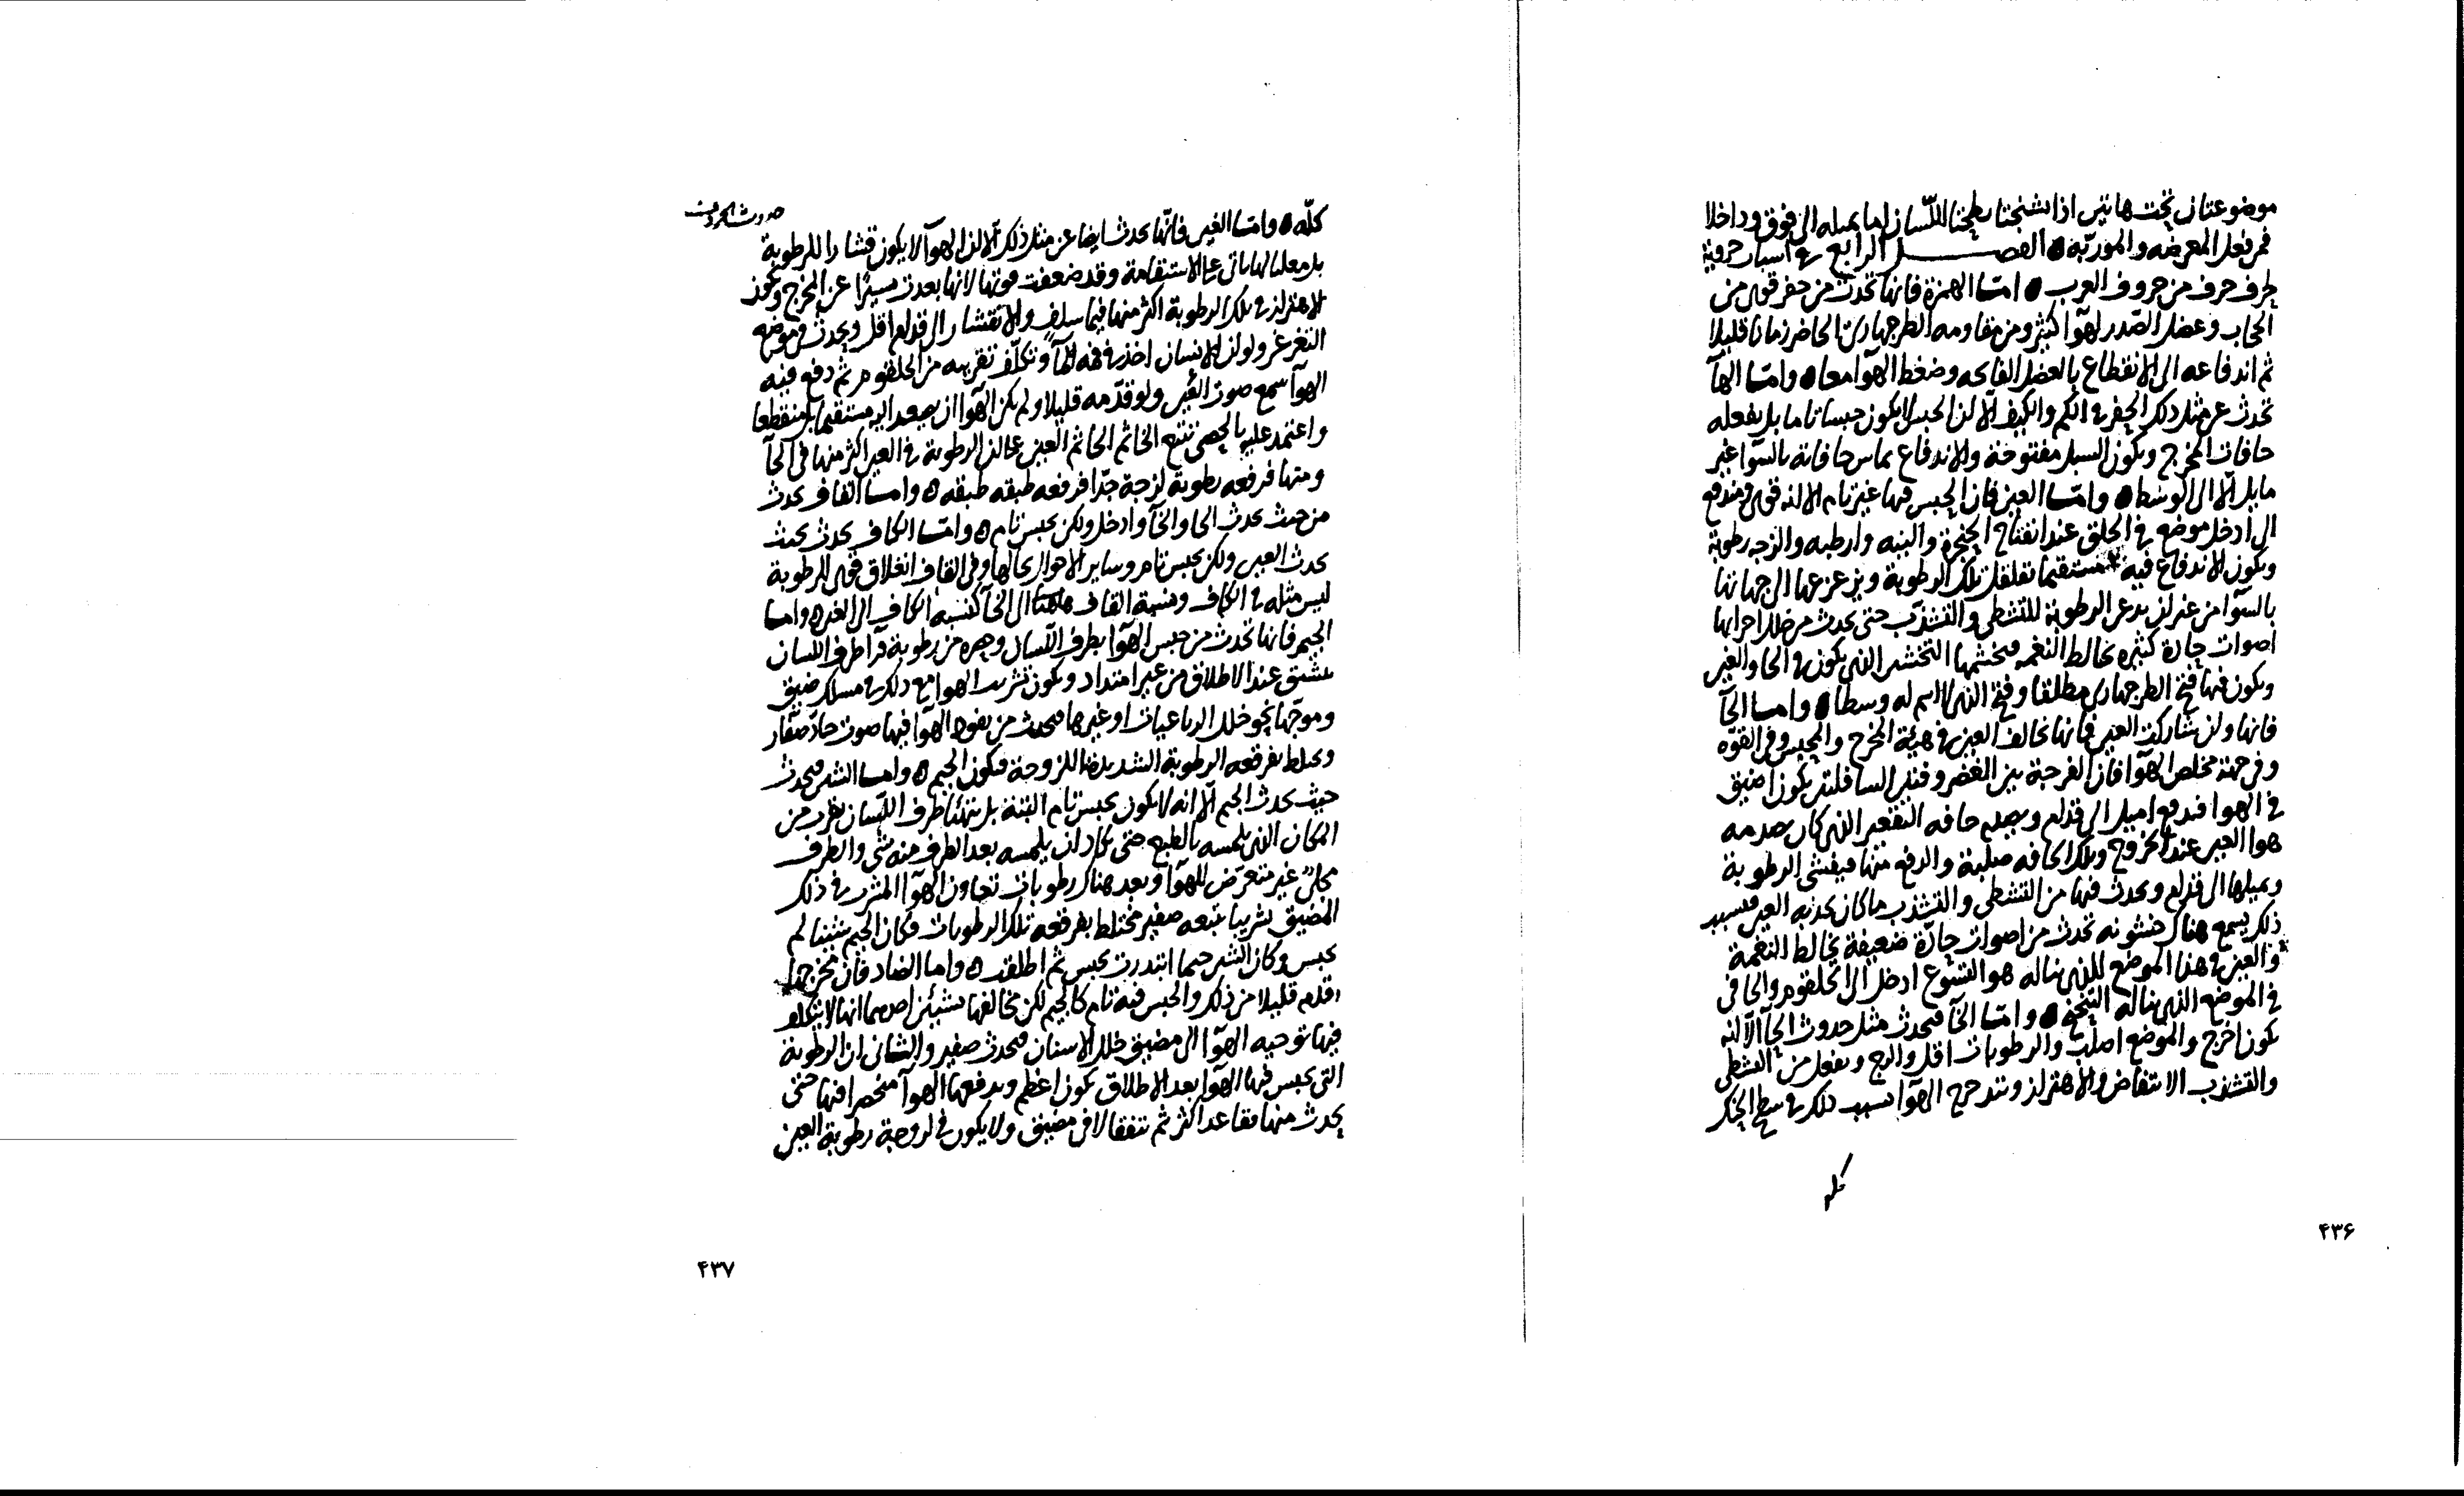 موضوعتان تحت هاتين اذا تشنجتا بطحتا اللسان اما يميله الى فوق وداخلا
فمن فعل المعرضه والموربة ه الفصل الرابع في اسباب حروفية
لحرف حرف من حروف العرب ه امّا الهمزة فانها تحدث من حفز قوى من
الحجاب وعضل الصّدر لهوآ كثير ومن مقاومه الطرجهارى الحاضر زمانا قليلا
ثم اندفاعه الى الانقطاع بالعضل الفاتحه وضغط الهوآ معا ه وامّا الهآ
تحدث عن مثل ذلك الحفز فى الكم والكيف الّا ان الحبس لا يكون حبسا تاما بل يفعله
حافات المخرج ويكون السبيل مفتوحة والاندفاع يماس حافاته بالسّوا غير
مايل الّا الى الوسط ه وامّا العين فان الحبس فيها غير تام الا انه قوى ومندفع
الى ادخل موضع فى الحلق عند انفتاح الحنجرة والينه وارطبه والزجه رطوبة
ويكون الاندفاع فيه مستقيما تقلقل تلك الرطوبة ويزعزعها الى جهاتها
بالسّوا من غير ان يدع الرطوبة للتشظى والتشذّب حتى يحدث من خلل اجزايها
اصوات حادة كثيره يخالط النغمه فيخشنها التخشن الذى يكون فى الحا والغين
ويكون فيها فتح الطرجهارى مطلقا وفتح الذى لا اسم له وسطا ه وامّا الحآ
فانها وان شاركت العين فانها تخالف العين فى هيئة المخرج والمحبس وفى القوّه
وفى جهة مخلص الهوآ فان الفرجة بين الغضروفين السافلين يكون اضيق
فى الهوا فيندفع اميل الى قدام ويصدم حافه التقعير الذى كان يصدمه
هوا العين عند الخروج وتلك الحافه صلبة والدفع منها فيقشر الرطوبة
ويميلها الى قدام ويحدث فيها من التشظى والتشذب ما كان يحدثه العين فبسبب
ذلك يسمع هناك خشونه تحدث من اصوات حادّة ضعيفة يخالط النغمة
والعين فى هذا الموضع للذى يناله هو التهوّع ادخل الى الحلقوم والحا فى
فى الموضع الذى يناله التنحنح ه وامّا الخآ فيحدث مثل حدوث الحآ الّا انه
يكون اخرج والموضع اصلب والرطوبات اقل والزج ويفعل من التشظى
والتشذب الانتفاض والاهتزاز ويتدحرج الهوآ بسبب ذلك فى سطح الحنك
كله
۴۳۶
حدوث الحروف
كلّه ه وامّا الغين فانّها تحدث ايضا عن مثل ذلك الّا ان الهوآ لا يكون قشارا للرطوبة
بل مقلبا لها ياتى على الاستقامة وقد ضعفت قوتها لانها بعدت يسيرًا عن المخرج ويكون
الاهتزاز فى تلك الرطوبة اكثر منها فيما سلف والانقشار الى قدام اقل ويحدث فى موضعه
التغرغر ولو ان الانسان اخذ فى فمه مآ وتكلّف تقريبه من الحلقوم ثم دفع فيه
الهوآ سمع صوت الغين ولو قدّمه قليلا ولم يكن الهوآ ان يصعد اليه مستقيما بل منقطعا
واعتمد عليه بالحصى تنبع الخا ثم الحا ثم العين على ان الرطوبة فى العين اكثر منها فى الحآ
ومنها فرقعه رطوبة لزجة جدّا فرقعه طبقه طبقه ه وامّا القاف يحدث
من حيث يحدث الحا والخآ وادخل ولكن بحبس تام ه وامّا الكاف يحدث بحيث
يحدث الغين ولكن بحبس تام وساير الاحوال بحالها وفى القاف انغلاق قوى للرطوبة
ليس مثله فى الكاف ونسبة القاف الى الخآ كنسبه الكاف الى الغين ه وامّا
الجيم فانها تحدث من حبس الهوآ بطرف اللّسان وحصره من رطوبة ورآ طرف اللسان
ينشق عند الاطلاق من غير امتداد ويكون تشريب الهوا مع ذلك فى مسلك ضيق
وموجّها نحو خلل الرباعيات او غيرها فيحدث من نفوذ الهوآ فيها صوت حادّ صفّار
ويخلط بفرقعه الرطوبة الشديدة اللزوجة فيكون الجيم ه وامّا الشين فيحدث
حيث يحدث الجيم الّا انه لا يكون بحبس تام البتة بل يتهيّأ طرف اللّسان يقرب من
المكان الذى يلمسه بالطبع حتى يكاد ان يلمسه بعد الطرف منه شى والطرف
مخلّى غير متعرّض للهوآ وبعد هناك رطوبات تعاون الهوآ المتسرب فى ذلك
المضيق تسريبا يتبعه صفير مختلط بفرقعه تلك الرطوبات فكان الجيم شينا لم
يحبس وكان الشين جيما ابتدرت بحبس ثم اطلقت ه واما الضاد فان مخرجها
اقدم قليلا من ذلك والحبس فيه تام كالجيم لكن تخالفها بشيئين احدهما انها لا يتكلف
فيها توجيه الهوآ الى مضيق خلل الاسنان فيحدث صفير والثانى ان الرطوبة
التى يحبس فيها الهوآ بعد الاطلاق يكون اعظم ويدفعها الهوآ منحصرا فيها حتى
يحدث منها فقاعد اكثر ثم تتفقا لا فى مضيق ولا يكون فى لزوجة رطوبة العين
۴۳۷